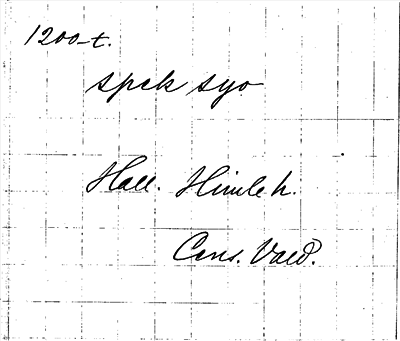 1200-t.
spek syo
Hall. Himle h.
Cons. Vald.